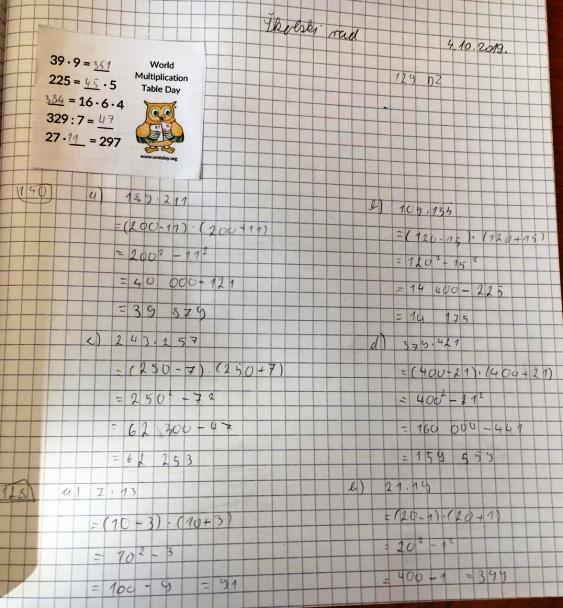 Školski rad
4.10.2019.
129 DZ
39 · 9 = 351
225 = 45 · 5
384 = 16 · 6 · 4
329 : 7 = 47
27 · 11 = 297
World
Multiplication
Table Day
www.wmtday.org
140
a) 189·211
=(200-11)·(200+11)
= 200² - 11²
= 40 000-121
= 39 879
b) 105·135
=(120-15)·(120+15)
= 120² - 15²
= 14 400 - 225
= 14 175
c) 243·257
= (250-7)·(250+7)
= 250² - 7²
= 62 500 - 47
= 62 253
d) 379·421
=(400-21)·(400+21)
= 400² - 21²
= 160 000 - 441
= 159 559
a) 7·13
= (10-3)·(10+3)
= 10² - 3
= 100 - 9 = 91
b) 21·19
=(20-1)·(20+1)
= 20² - 1²
= 400-1 = 399